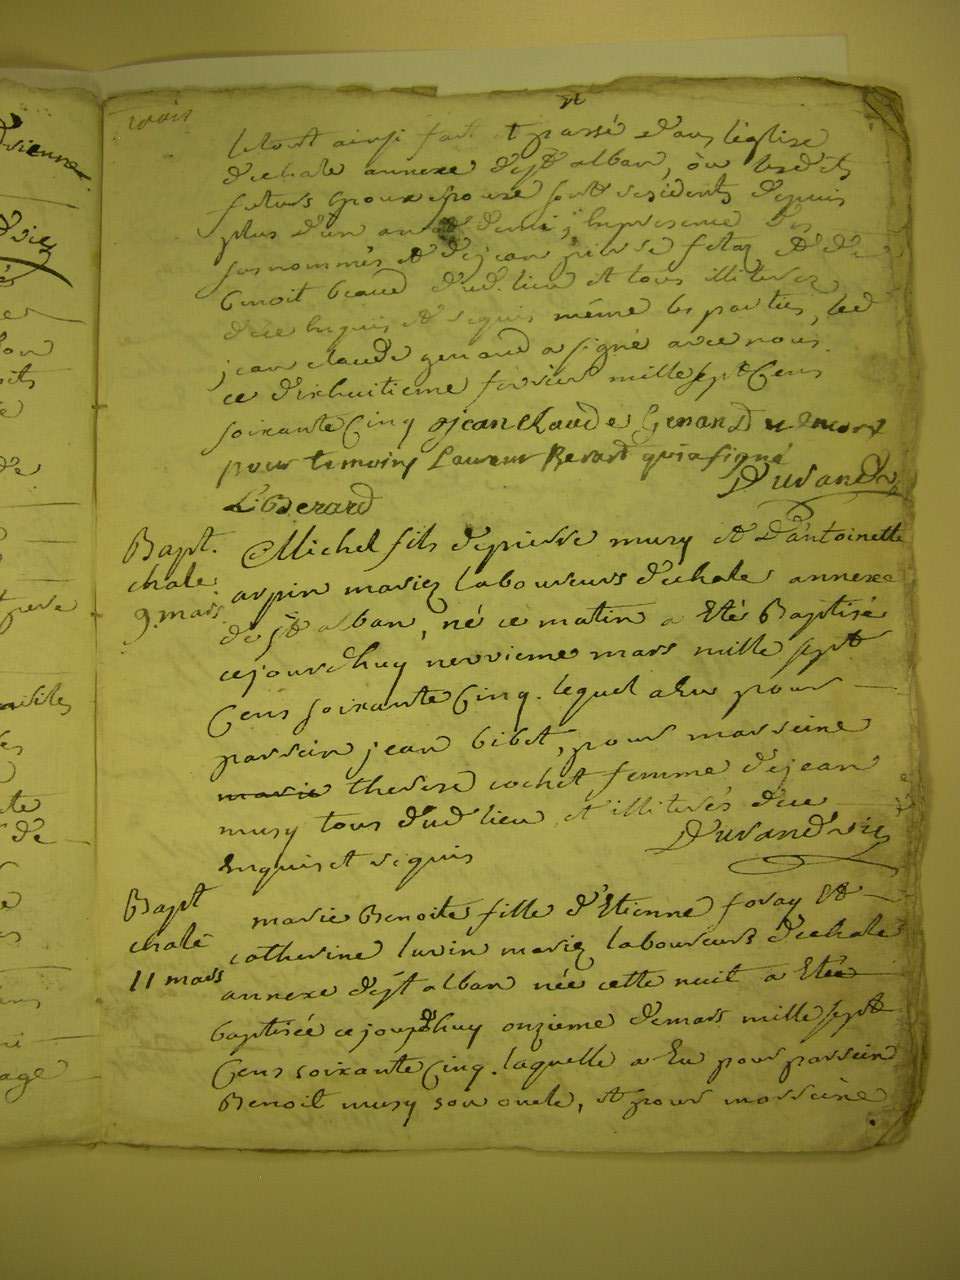 le tout ainsi fait et passé dans l'église
de chale annexe de st alban, où lesdits
futurs époux épouse sont residents depuis
plus d'un an et demi, en presence des
susnommés et de jean pierre fetaz et de
benoit beaud dud. lieu et tous illiterez
de ce enquis et requis même les parties, led
jean claude genand a signé avec nous
ce dixhuitieme fevrier mille sept Cens
soixante Cinq jean claude Genand
pour temoins Laurent Berard qui a signé
L. Berard
Durand
Bapt.
chale
9. mars
Michel fils de pierre mury et d'antoinette
arpin mariez laboureurs de chale annexe
de st alban, né ce matin a Eté Baptisé
cejourdhuy neuvieme mars mille sept
Cens soixante Cinq. lequel a Eu pour
parrein jean bibet, pour marreine
marie therese cochet femme de jean
mury tous dud lieu et illiterés de ce
Enquis et requis
Durand vic
Bapt
chale
11 mars
marie Benoite fille d'Etienne foray Et
catherine luvin mariez laboureurs de chale
annexe de st alban née cette nuit a Etée
baptisée cejourdhuy onzieme de mars mille sept
Cens soixante Cinq. laquelle a Eu pour parrein
Benoit mury son oncle, et pour marreine